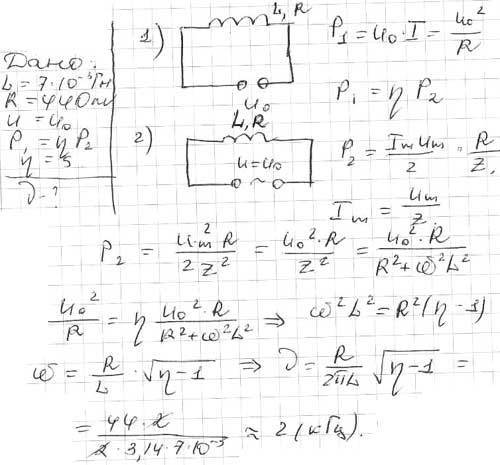 Дано:
L = 7·10⁻³ Гн
R = 44 Ом
u = u₀
P₁ = η P₂
η = 5
ν - ?
1)
L, R
u₀
P₁ = u₀·I = u₀²/R
P₁ = η P₂
2)
L, R
u = u₀
~
P₂ = (I_m u_m)/2 · R/Z,
I_m = u_m/Z.
P₂ = (u_m² R)/(2 Z²) = (u₀²·R)/Z² = (u₀²·R)/(R²+ω²L²)
u₀²/R = η (u₀²·R)/(R²+ω²L²) ⇒ ω²L² = R²(η-1)
ω = R/L · √(η-1) ⇒ ν = R/(2πL) √(η-1) =
= (44·2)/(2·3,14·7·10⁻³) ≈ 2 (кГц).